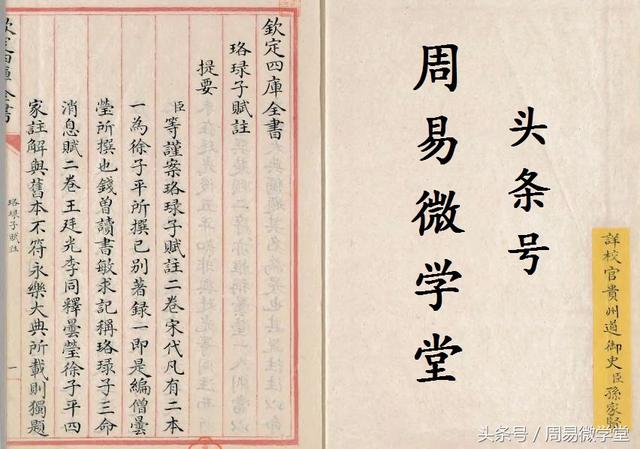 欽定四庫全書
珞琭子賦註
提要
臣等謹案珞琭子賦註二卷宋代凡有二本
一為徐子平所撰已別著録一即是編僧曇
瑩所撰也錢曽讀書敏求記稱珞琭子三命
消息賦二卷王廷光李同釋曇瑩徐子平四
家註解與舊本不符永樂大典所載則獨題
珞琭子賦註
一
欽定四庫全書
头条号
周易微学堂
詳校官貴州道御史臣孫家賢
头条号 / 周易微学堂